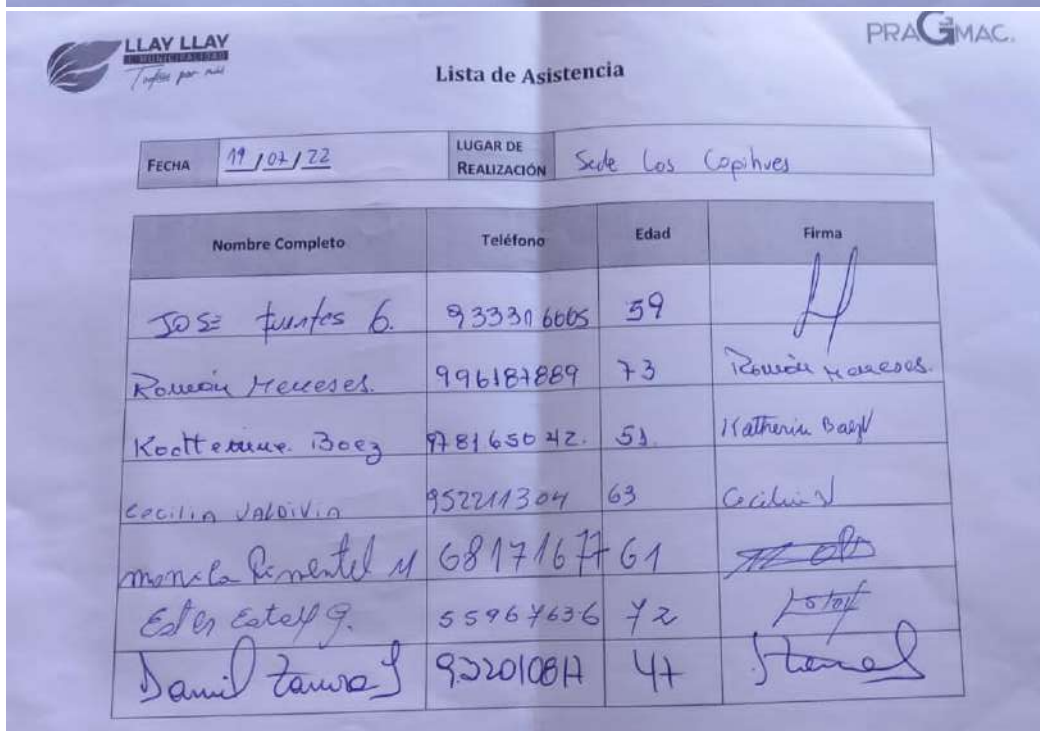 LLAY LLAY
I. MUNICIPALIDAD
Todos por más
PRAGMAC.
Lista de Asistencia
FECHA 19/07/22 LUGAR DE REALIZACIÓN Sede Los Copihues
Nombre Completo Teléfono Edad Firma
JOSE fuentes G. 933306665 59
Román Meneses. 996187889 73 Román Meneses.
Baez 978165042. 51. Katherin Baez
Cecilia VALDIVIA 952211304 63 Cecilia V
monica Pimentel M 68171677 61
Ester Estay G. 55967636 72 Estay
Daniel Zamora 47